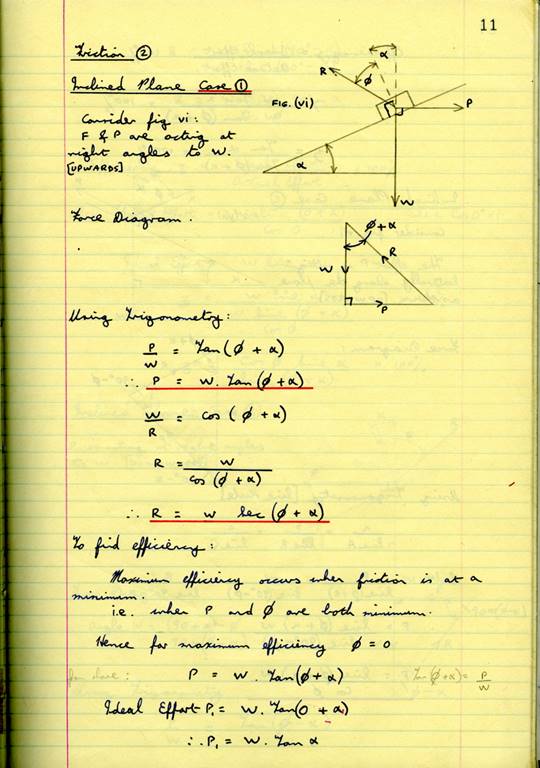 11
Friction ②
Inclined Plane Case ①
Consider fig vi:
F & P are acting at
right angles to W.
[UPWARDS]
FIG. (VI)
R
ϕ
α
P
α
W
Force Diagram.
ϕ+α
R
W
P
Using Trigonometry:
P/W = Tan (ϕ + α)
∴ P = W. Tan (ϕ + α)
W/R = cos (ϕ + α)
R = W/cos (ϕ + α)
∴ R = W sec (ϕ + α)
To find efficiency:
Maximum efficiency occurs when friction is at a
minimum.
i.e. when P and ϕ are both minimum.
Hence for maximum efficiency ϕ = 0
P = W. Tan(ϕ + α)
Tan (ϕ+α) = P/W
Ideal Effort P₁ = W. Tan(0 + α)
∴ P₁ = W. Tan α